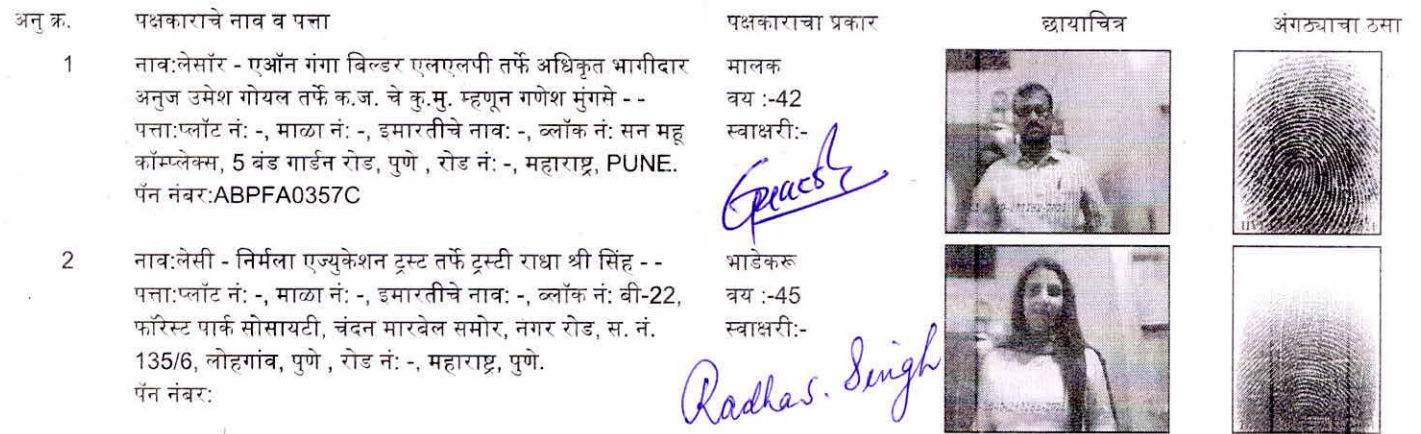 अनु क्र. पक्षकाराचे नाव व पत्ता पक्षकाराचा प्रकार छायाचित्र अंगठ्याचा ठसा
1 नाव:लेसॉर - एऑन गंगा बिल्डर एलएलपी तर्फे अधिकृत भागीदार मालक
अनुज उमेश गोयल तर्फे क.ज. चे कु.मु. म्हणून गणेश मुंगसे - - वय :-42
पत्ता:प्लॉट नं: -, माळा नं: -, इमारतीचे नाव: -, ब्लॉक नं: सन महू स्वाक्षरी:-
कॉम्प्लेक्स, 5 बंड गार्डन रोड, पुणे , रोड नं: -, महाराष्ट्र, PUNE.
पॅन नंबर:ABPFA0357C
2 नाव:लेसी - निर्मला एज्युकेशन ट्रस्ट तर्फे ट्रस्टी राधा श्री सिंह - - भाडेकरू
पत्ता:प्लॉट नं: -, माळा नं: -, इमारतीचे नाव: -, ब्लॉक नं: बी-22, वय :-45
फॉरेस्ट पार्क सोसायटी, चंदन मारबेल समोर, नगर रोड, स. नं. स्वाक्षरी:-
135/6, लोहगांव, पुणे , रोड नं: -, महाराष्ट्र, पुणे.
पॅन नंबर:
Radha S. Singh